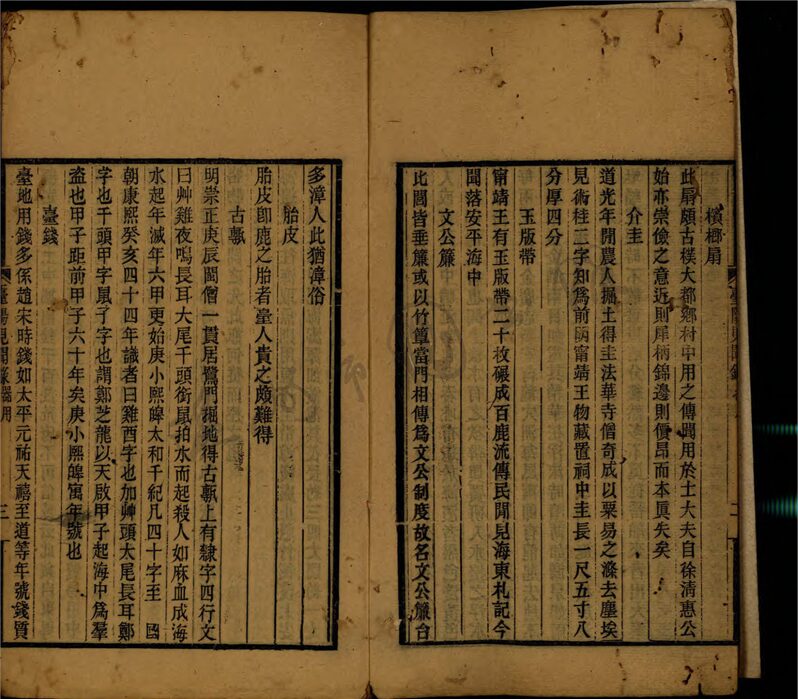 檳榔扇
此扇頗古樸大都鄉村中用之傳聞用於士大夫自徐清惠公
始亦崇儉之意近則犀柄錦邊則價昂而本眞失矣
介圭
道光年間農人掘土得圭法華寺僧奇成以粟易之滌去塵埃
見術桂二字知爲前朙甯靖王物藏置祠中圭長一尺五寸八
分厚四分
玉版帶
甯靖王有玉版帶二十枚碾成百鹿流傳民間見海東札記今
聞落安平海中
文公簾
比閭皆垂簾或以竹簟當門相傳爲文公制度故名文公簾台
多漳人此猶漳俗
胎皮
胎皮卽鹿之胎者臺人貴之頗難得
古甎
明崇正庚辰閩僧一貫居鷺門掘地得古甎上有隸字四行文
曰艸雞夜鳴長耳大尾千頭銜鼠拍水而起殺人如麻血成海
水起年滅年六甲更始庚小熙皞太和千紀凡四十字至　國
朝康熙癸亥四十四年識者曰雞酉字也加艸頭大尾長耳鄭
字也千頭甲字鼠子字也謂鄭芝龍以天啟甲子起海中爲羣
盜也甲子距前甲子六十年矣庚小熙皞寓年號也
臺錢
臺地用錢多係趙宋時錢如太平元祐天禧至道等年號錢質
臺陽見聞錄 器用
三